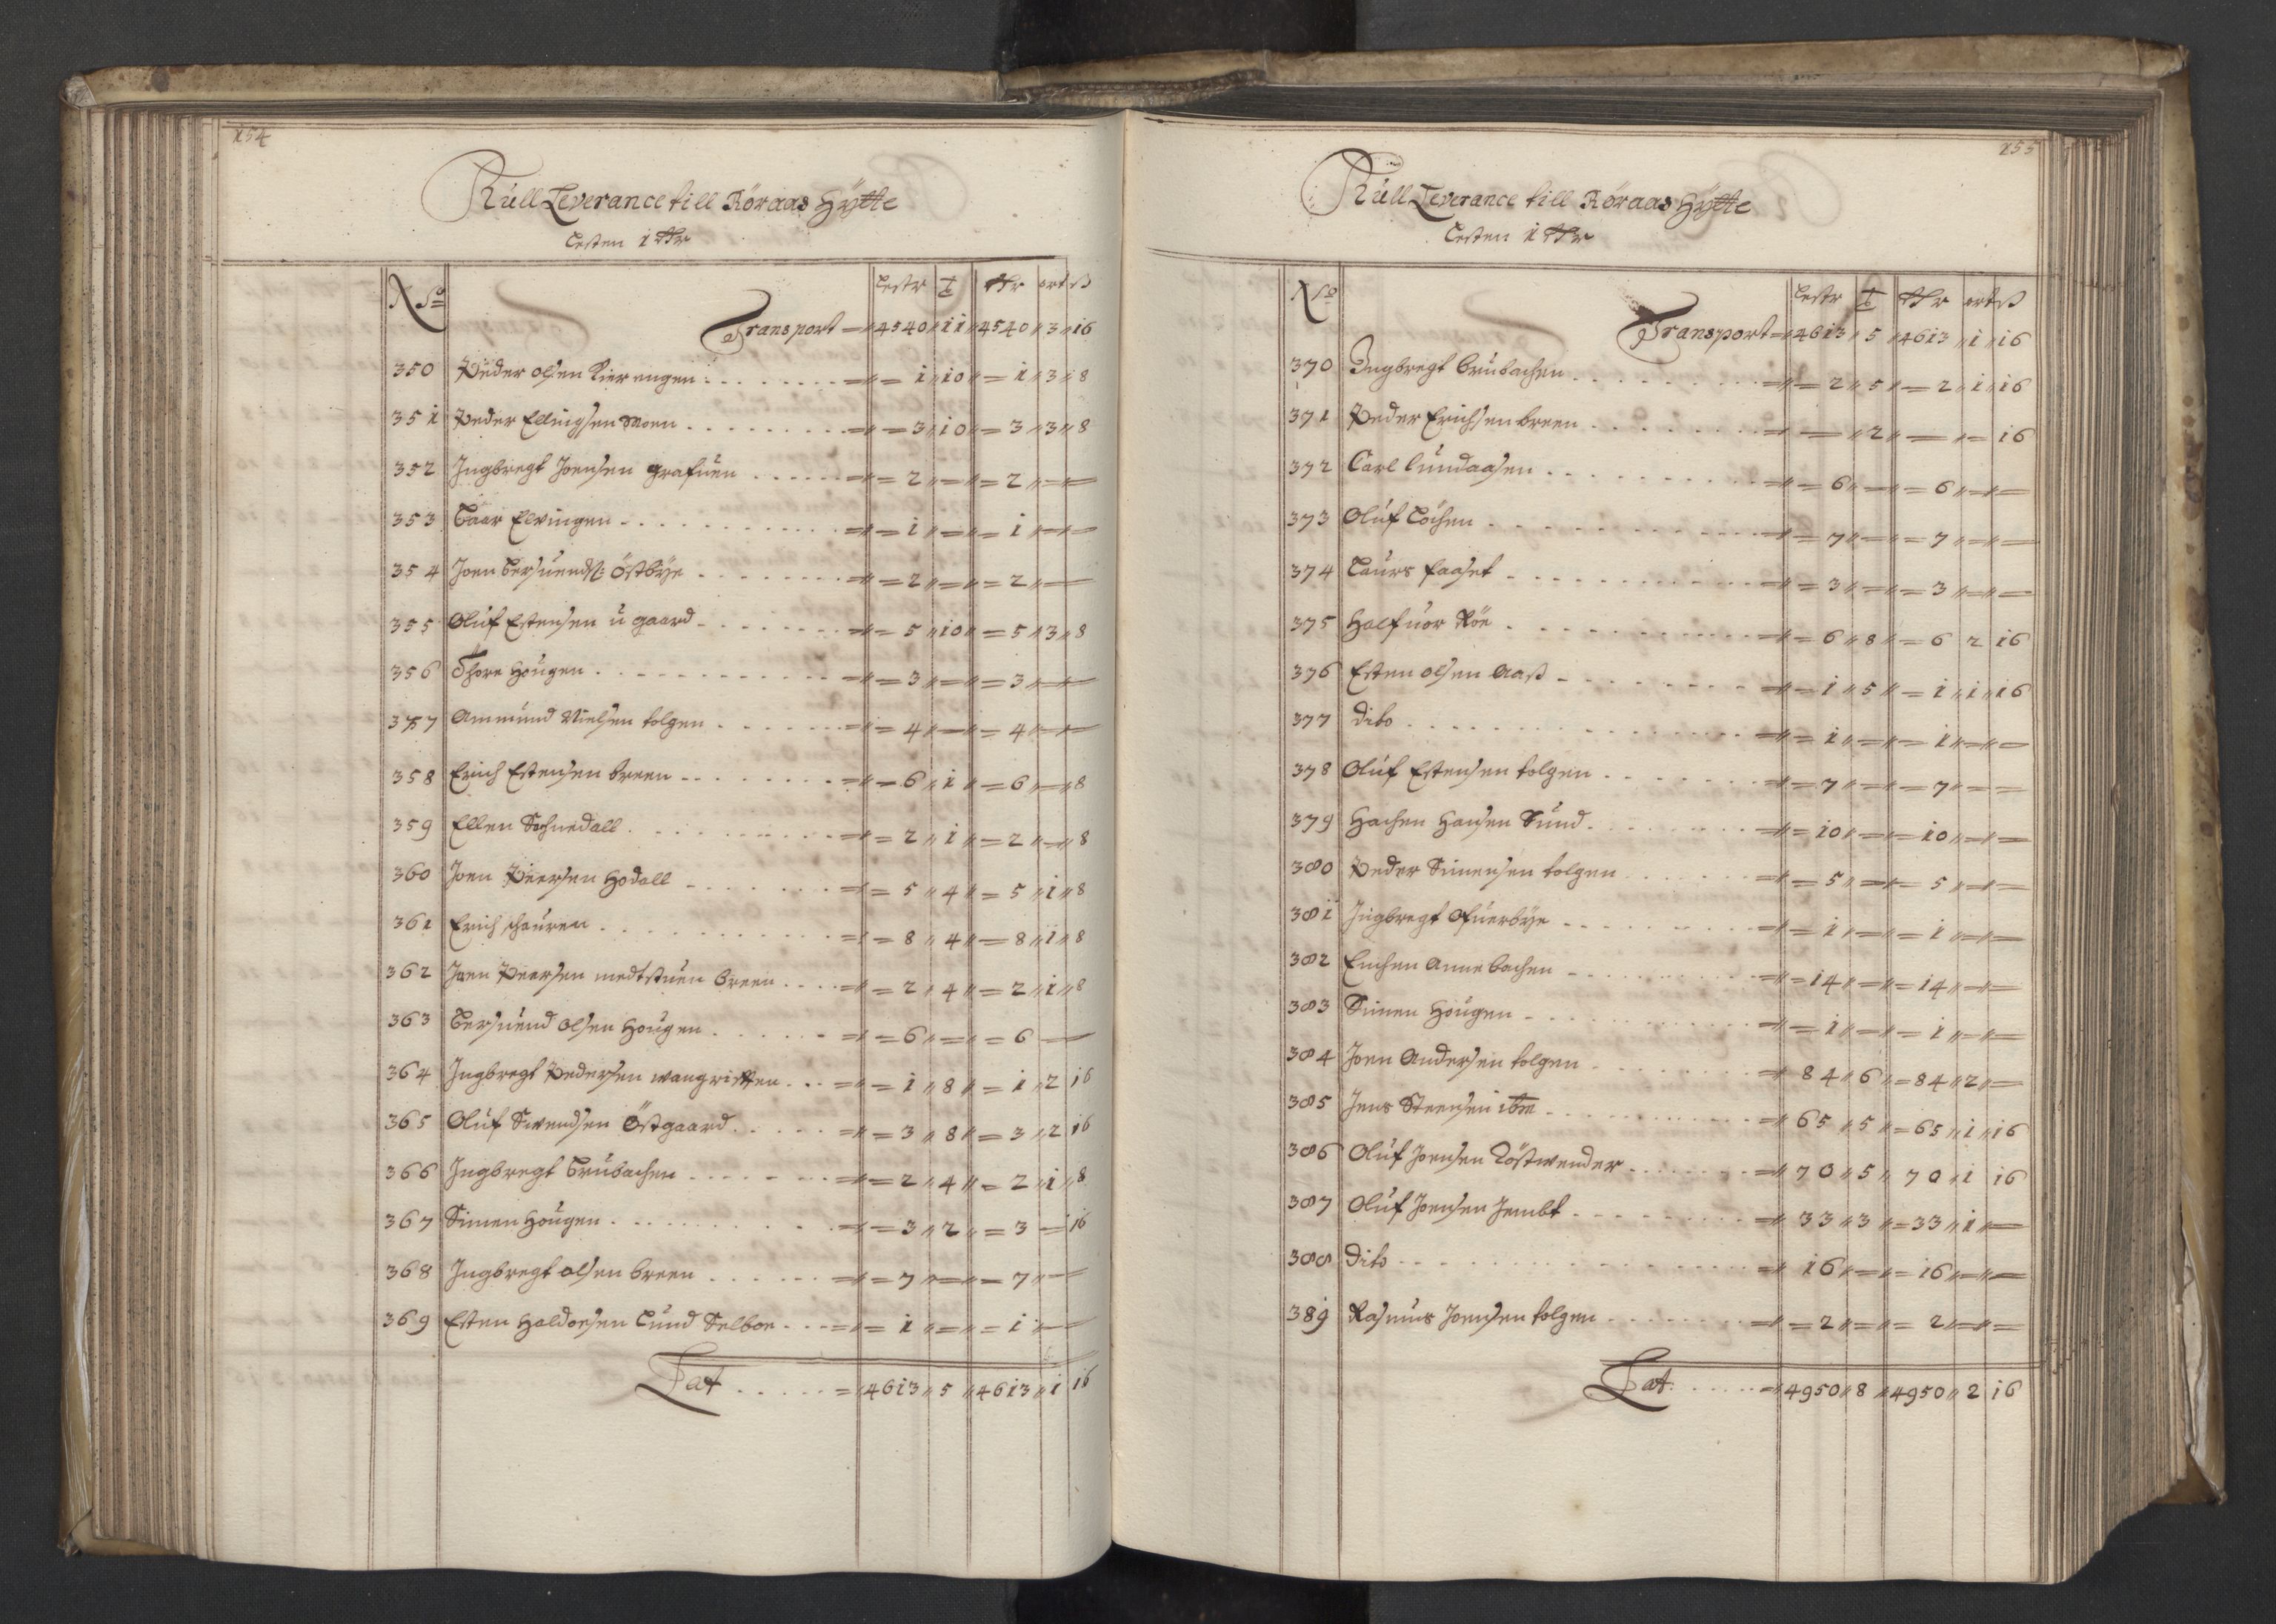 154
Kúll Leverance till Röraas Hÿtte
Lesten 1 Rdr
No Lestr T Rdr ort ß
Transport =〃4540〃11〃4540〃3〃16
350 Peder olsen Kierengen = 1〃10〃= 1〃3〃8
351 Peder Ellingsen Moen = 3〃10〃= 3〃3〃8
352 Ingbregt Joensen grafúen = 2〃=〃= 2〃=〃=
353 Baar Elvingen = 1〃=〃= 1〃=〃=
354 Joen Bersúends: Östbÿe = 2〃=〃= 2〃=〃=
355 Olúf Estensen ú gaard = 5〃10〃= 5〃3〃8
356 Thore Hoúgen = 3〃=〃= 3〃=〃=
357 Ammúnd Nielsen tolgen = 4〃=〃= 4〃=〃=
358 Erich Estensen breen = 6〃1〃= 6〃=〃8
359 Ellen Schnedall = 2〃1〃= 2〃=〃8
360 Joen Peersen Hodall = 5〃4〃= 5〃1〃8
361 Erich schaúren = 8〃4〃= 8〃1〃8
362 Joen Peersen medtstúen breen = 2〃4〃= 2〃1〃8
363 Bersúend olsen Hoúgen = 6〃=〃= 6 =
364 Ingbregt Pedersen wangrösten = 1〃8〃= 1〃2 16
365 Olúf Svendsen Östgaard = 3〃8〃= 3〃2 16
366 Ingbregt Brúbachen = 2〃4〃= 2〃1〃8
367 Simen Hoúgen = 3〃2〃= 3 = 16
368 Ingbregt olsen breen = 7〃=〃= 7〃=
369 Esten Haldorsen Lúnd Selboe = 1〃=〃= 1〃=
Lat =〃4613〃5〃4613〃1 16
155
Kúll Leverance till Röraas Hÿtte
Lesten 1 Rdr
No Lestr T Rdr ort ß
Transport =〃4613〃5〃4613〃1〃16
370 Ingbregt brúbachen = 2〃5〃= 2〃1〃16
371 Peder Erichsen breen =〃2〃=〃= 16
372 Carl lúndaasen = 6〃=〃= 6〃=〃=
373 Olúf Löchen = 7〃=〃= 7〃=〃=
374 Laúrs faaset = 3〃=〃= 3〃=〃=
375 Halfúor Röe = 6〃8〃= 6 2 16
376 Esten olsen Aaß = 1〃5〃= 1〃1〃16
377 dito = 1〃=〃= 1〃=〃=
378 Olúf Estensen tolgen = 7〃=〃= 7〃= =
379 Hachen Hansen Súnd = 10〃=〃= 10〃=〃=
380 Peder Simensen tolgen = 5〃=〃= 5〃=〃=
381 Ingbregt Ofúerbÿe = 1〃=〃= 1〃=〃=
382 Enchen Anne bachen = 14〃=〃= 14〃=〃=
383 Simen Hoúgen = 1〃=〃= 1〃=〃=
384 Joen Andersen tolgen =〃84〃6〃= 84〃2〃=
385 Jens Steensen ibm =〃65〃5〃= 65〃1〃16
386 Olúf Joensen Röstwender =〃70〃5〃 70〃1 16
387 Olúf Joensen Jembt =〃33〃3〃= 33〃1〃=
388 dito =〃16〃=〃= 16〃=〃=
389 Rasmús Joensen tolgen = 2〃=〃= 2〃=〃=
Lat: =〃4950〃8〃4950〃2 16